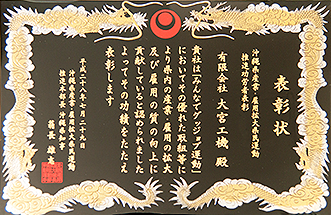 表彰状
沖縄県産業・雇用拡大県民運動
推進功労者表彰
有限会社 大宮工機 殿
貴社は「みんなでグッジョブ運動」
においてその優れた取組等に
より県内の産業・雇用の拡大
及び雇用の質の向上に
貢献していると認められました
よってその功績をたたえ
表彰します
平成二十八年七月二十九日
沖縄県産業・雇用拡大県民運動
推進本部長 沖縄県知事
翁長 雄志